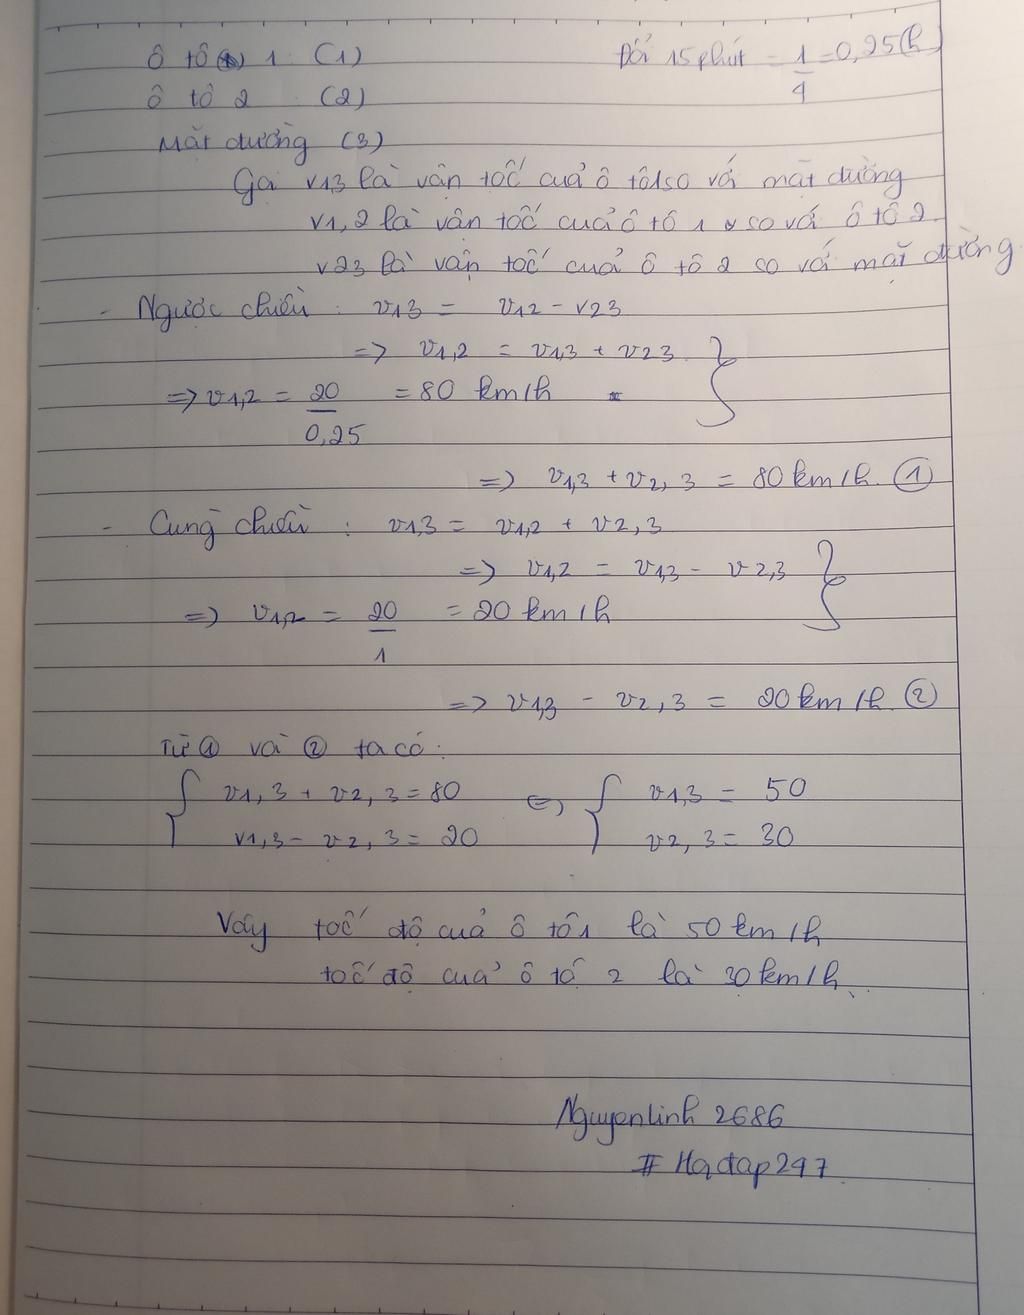 ô tô 1 (1) Đổi 15 phút = 1/4 = 0,25(h)
ô tô 2 (2)
Mặt đường (3)
Gọi v13 là vận tốc của ô tô1so với mặt đường
v1,2 là vận tốc của ô tô 1 so với ô tô 2
v23 là vận tốc của ô tô 2 so với mặt đường
- Ngược chiều : v13 = v12 - v23
=> v1,2 = v1,3 + v23 }
=> v1,2 = 20/0,25 = 80 km/h
=> v1,3 + v2,3 = 80 km/h. ①
- Cùng chiều : v1,3 = v1,2 + v2,3
=> v1,2 = v1,3 - v2,3 }
=> v1,2 = 20/1 = 20 km/h
=> v1,3 - v2,3 = 20 km/h. ②
Từ ① và ② ta có :
{ v1,3 + v2,3 = 80 <=> { v1,3 = 50
v1,3 - v2,3 = 20 v2,3 = 30
Vậy tốc độ của ô tô1 là 50 km/h
tốc độ của ô tô 2 là 30 km/h.
Nguyenlinh 2686
# Hqdap247